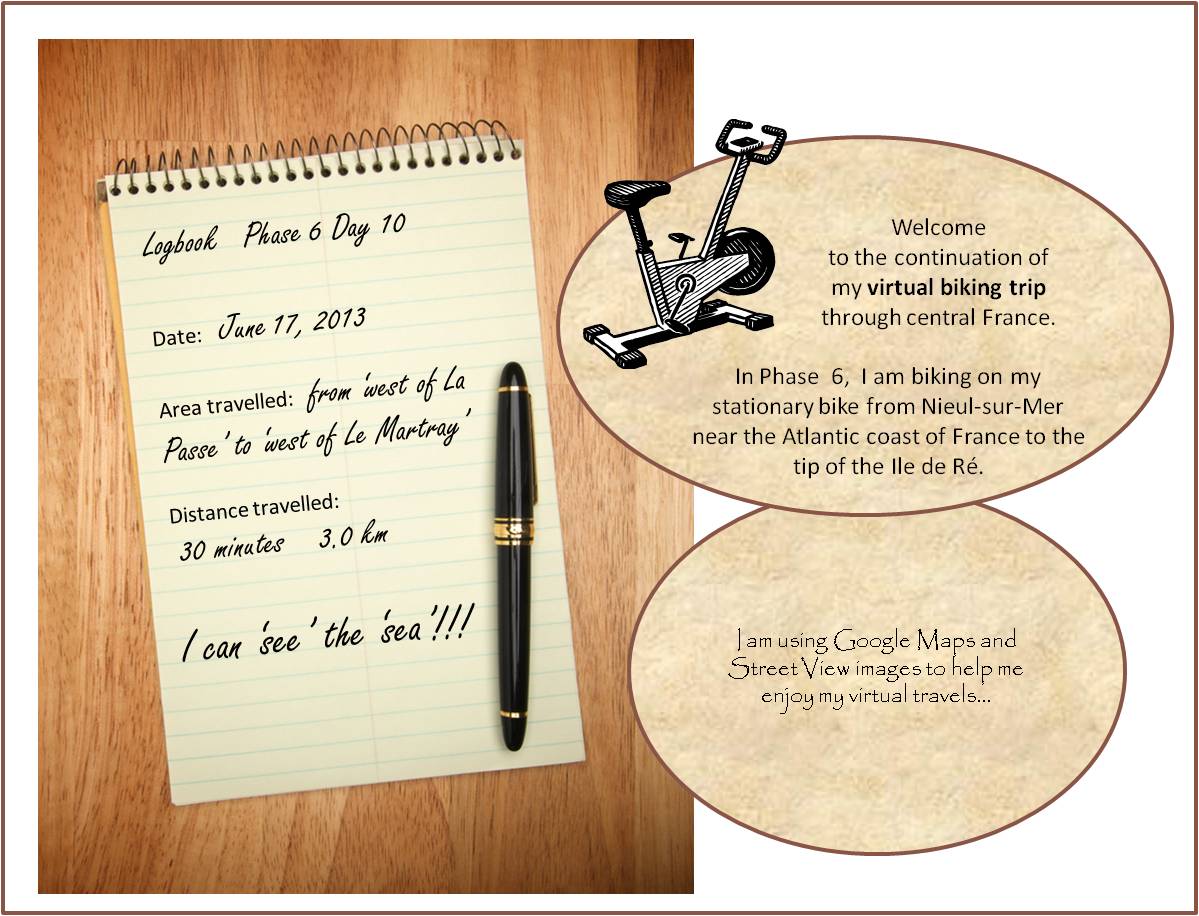 Logbook Phase 6 Day 10
Date: June 17, 2013
Area travelled: from 'west of La
Passe' to 'west of Le Martray'
Distance travelled:
30 minutes 3.0 km
I can 'see' the 'sea'!!!
Welcome
to the continuation of
my virtual biking trip
through central France.
In Phase 6, I am biking on my
stationary bike from Nieul-sur-Mer
near the Atlantic coast of France to the
tip of the Ile de Ré.
I am using Google Maps and
Street View images to help me
enjoy my virtual travels...